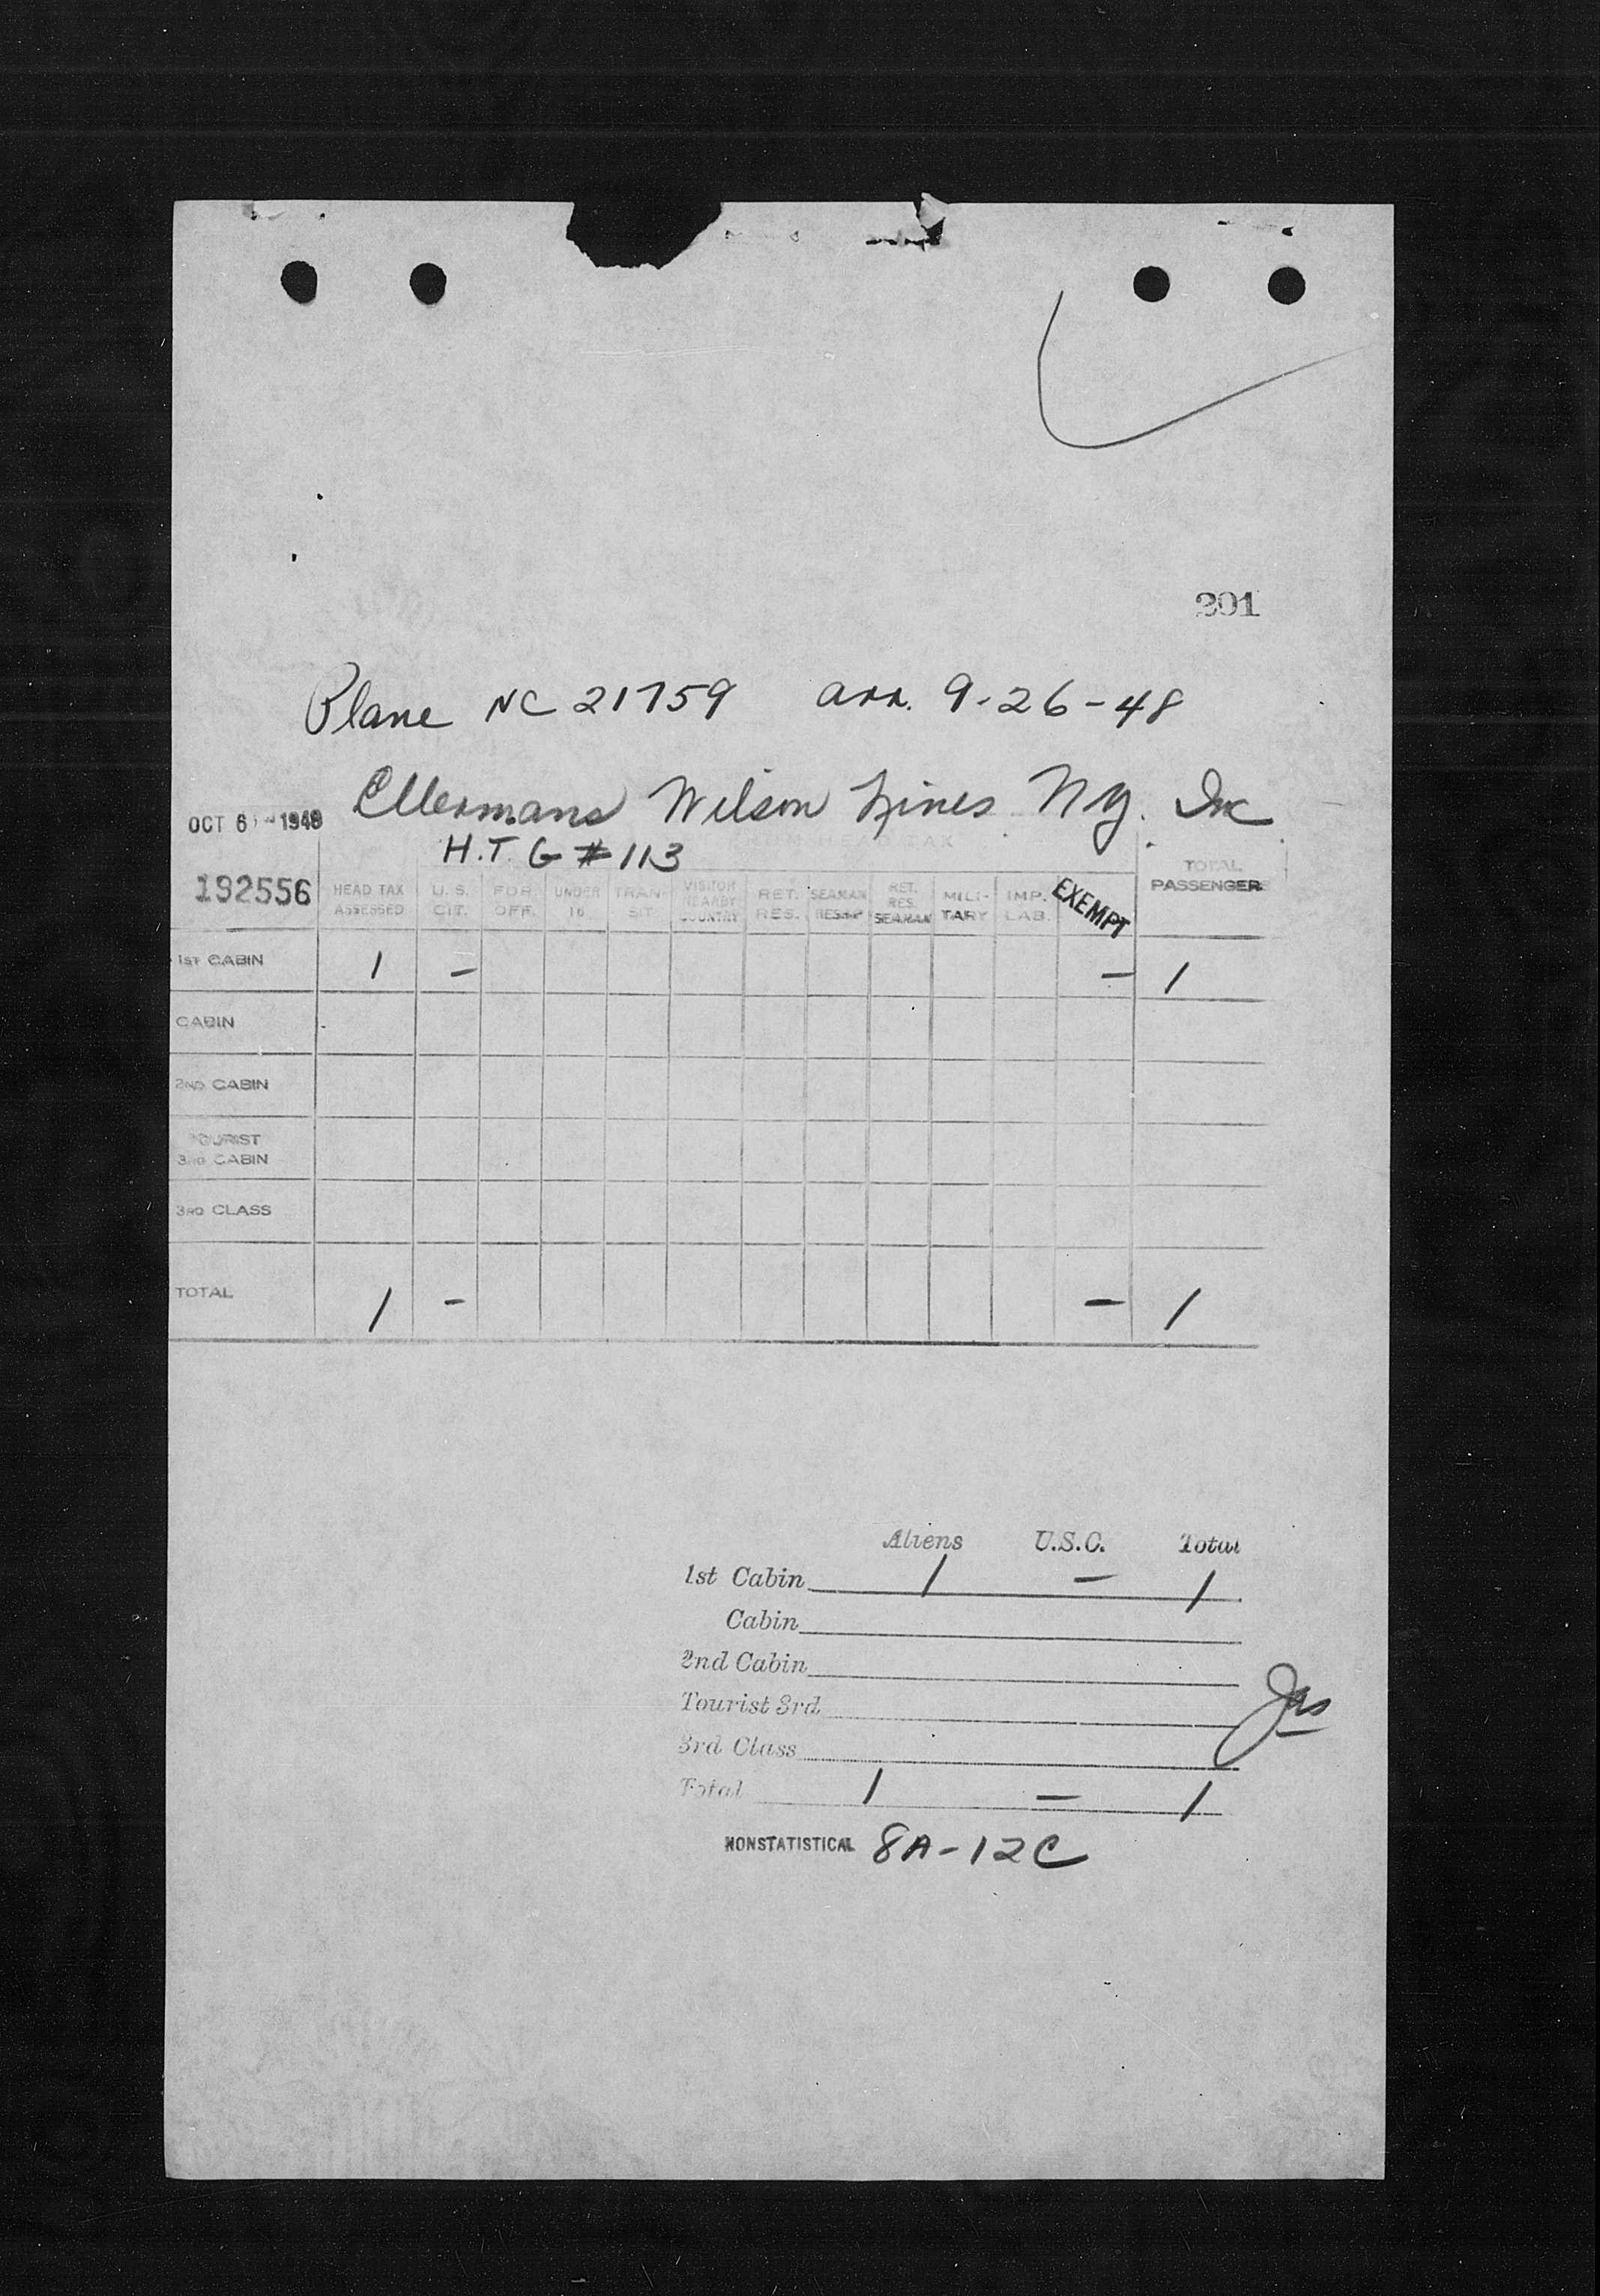 201
Plane NC 21759 arr. 9-26-48
Ellermans Wilson Lines N.Y. Inc
OCT 6 - 1948
H.T. G # 113
192556
HEAD TAX ASSESSED U.S. CIT. FOR. OFF. UNDER 16 TRAN-SIT VISITOR NEARBY COUNTRY RET. RES. SEAMAN RET. RES. SEAMAN MILI-TARY IMP. LAB. EXEMPT TOTAL PASSENGERS
1ST CABIN 1 - - 1
CABIN
2ND CABIN
TOURIST
3RD CABIN
3RD CLASS
TOTAL 1 - - 1
Aliens U.S.C. Total
1st Cabin 1 - 1
Cabin
2nd Cabin
Tourist 3rd
3rd Class
Total 1 - 1
NONSTATISTICAL 8A-12C